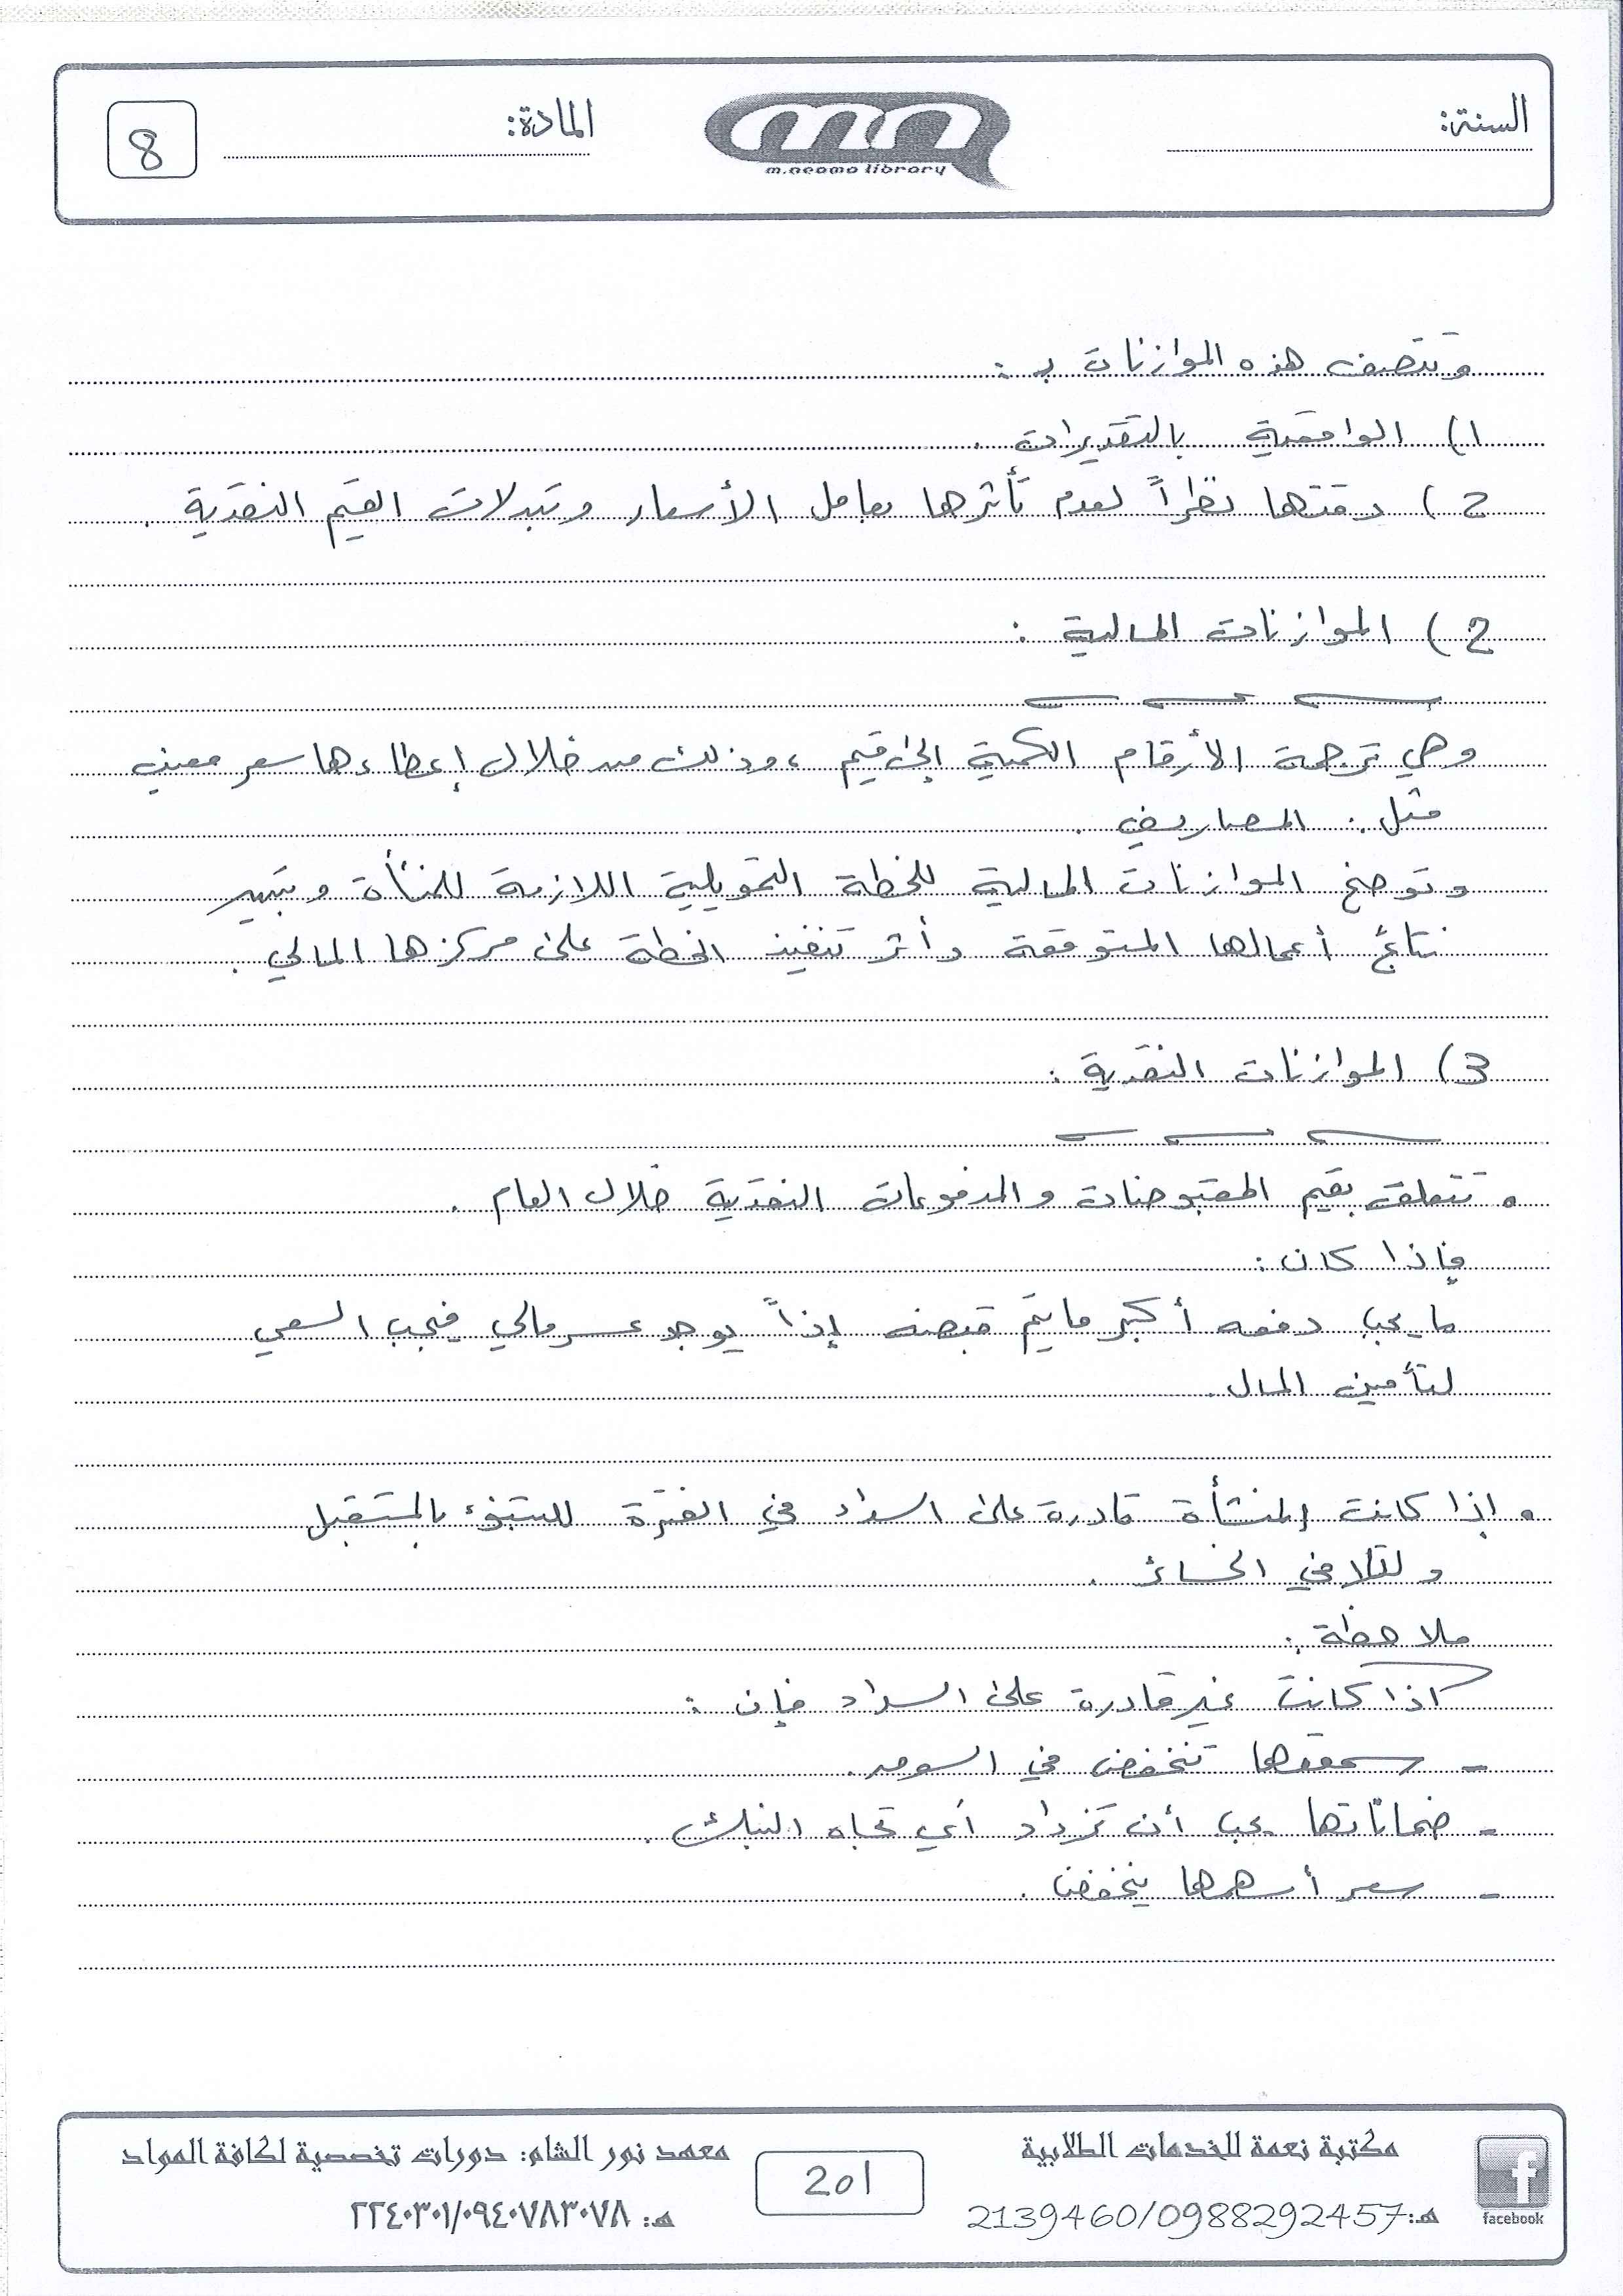 السنة:
m.neama library
المادة:
8
وتتصف هذه الموازنات بـ :
1) الواقعية بالتقديرات .
2) دقتها نظراً لعدم تأثرها بعامل الأسعار وتبدلات القيم النقدية .
2) الموازنات المالية :
وهي ترجمة الأرقام الكمية إلى قيم ، وذلك من خلال إعطاءها سعر معين
مثل : المصاريف .
وتوضح الموازنات المالية للخطة التمويلية اللازمة للمنشأة وتبين
نتائج أعمالها المتوقعة وأثر تنفيذ الخطة على مركزها المالي .
3) الموازنات النقدية :
• تتعلق بقيم المقبوضات والمدفوعات النقدية خلال العام .
فإذا كان :
ما يجب دفعه أكبر ما يتم قبضه إذاً يوجد عسر مالي فيجب السعي
لتأمين المال .
• إذا كانت المنشأة قادرة على السداد في الفترة للتنبؤ بالمستقبل
ولتلافي الخسائر .
ملاحظة :
اذا كانت غير قادرة على السداد فإن :
- سمعتها تنخفض في السوق .
- ضماناتها يجب أن تزداد أي تجاه البنك .
- سعر أسهمها ينخفض .
facebook
مكتبة نعمة للخدمات الطلابية
هـ: 2139460/0988292457
201
معهد نور الشام: دورات تخصصية لكافة المواد
هـ: ٢٢٤٠٣٠١/٠٩٤٠٧٨٣٠٧٨